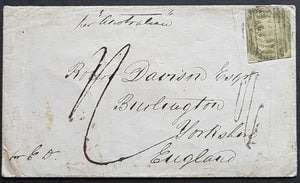 per "Australian"
Robert Davison Esqr
Burlington
Yorkshire
England